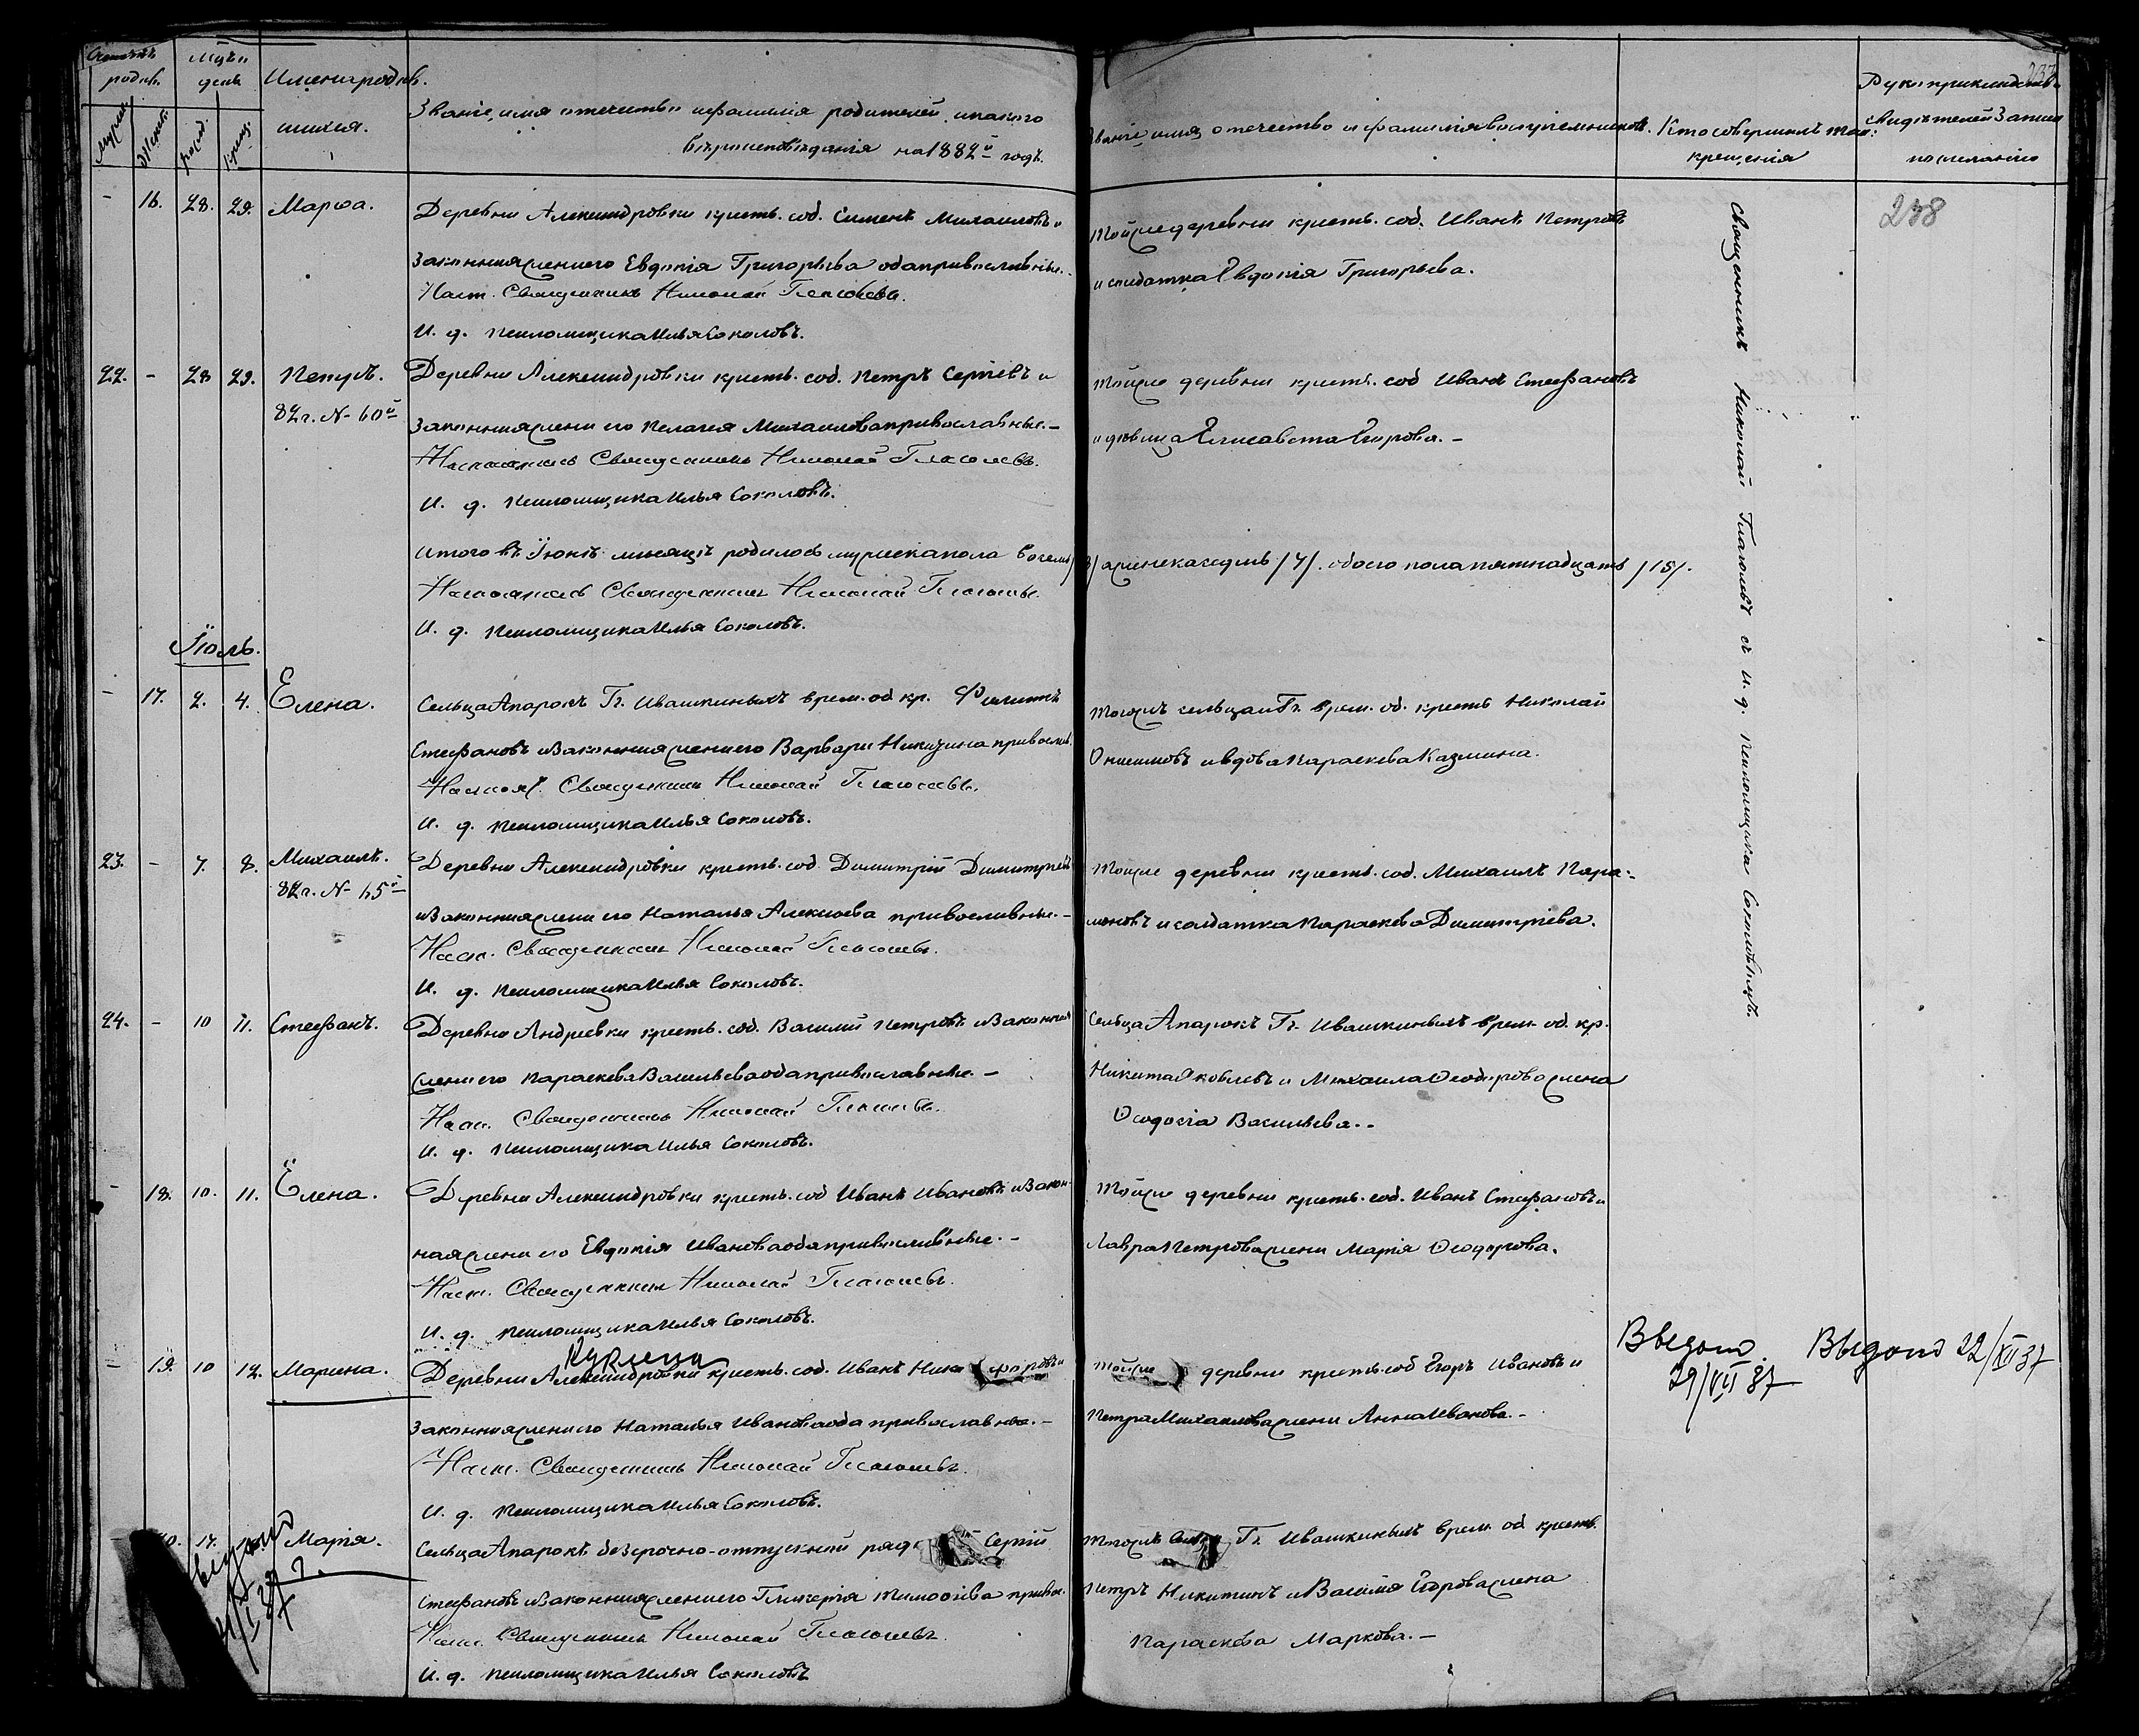 Счетъ родив. Мцъ и день Имена родив. Званіе, имя отечество и фамилія родителей, и какого
шихся. вѣроисповѣданія на 1882й годъ.
Званіе, имя, отечество и фамилія воспріемниковъ. Кто совершилъ таи: Рукоприкладство
крещенія свидѣтелей записи
по желанію
238
- 16. 28. 29. Марѳа. Деревни Александровки кресть. соб. Сименъ Михаиловъ и
законная жена его Евдокія Григорьева оба православные.
Наст. Священникъ Николай Глаголевъ.
И. д. Псаломщика Илья Соколовъ.
Тойже деревни кресть. соб. Иванъ Петровъ
и солдатка Евдокія Григорьева.
22. - 28 29. Петръ. Деревни Александровки кресть. соб. Петръ Сергіевъ и
82 г. № 60й законная жена его Пелагея Михаилова православные. -
Настоятель Священникъ Николай Глаголевъ.
И. д. Псаломщика Илья Соколовъ.
Тойже деревни кресть. соб Иванъ Стефановъ
и дѣвица Елисавета Егорова. -
Итого въ Іюнѣ мѣсяцѣ родилось мужеска пола восемь /8/ а женска семь /7/. обоего пола пятнадцать /15/.
Настоятель Священникъ Николай Глаголевъ
И. д. Псаломщика Илья Соколовъ.
Іюль.
- 17. 2. 4. Елена. Сельца Апарокъ Гг. Ивашкиныхъ врем. об кр. Филиппъ
Стефановъ и законная жена его Варвара Никитина правосл.
Настоят. Священникъ Николай Глаголевъ.
И. д. Псаломщика Илья Соколовъ.
Тогожъ сельца и Гг. врем. об. кресть Николай
Онисимовъ и вдова Параскева Казмина.
23. - 7. 8. Михаилъ. Деревни Александровки кресть. соб. Димитрій Димитріевъ
82 г. № 65й и законная жена его Наталья Алексѣева православные. -
Наст. Священникъ Николай Глаголевъ.
И. д. Псаломщика Илья Соколовъ.
Тойже деревни кресть. соб. Михаилъ Пара-
моновъ и солдатка Параскева Димитріева.
24. - 10 11. Стефанъ. Деревни Андреевки кресть. соб. Василій Петровъ и законная
жена его Параскева Васильева оба православные. -
Наст. Священникъ Николай Глаголевъ.
И. д. Псаломщика Илья Соколовъ.
Сельца Апарокъ Гг. Ивашкиныхъ врем. об. кр.
Никита Яковлевъ и Михаила Ѳеодорова жена
Ѳеодосія Васильева. -
- 18. 10. 11. Елена. Деревни Александровки кресть. соб Иванъ Ивановъ и закон-
ная жена его Евдокія Иванова оба православные. -
Наст. Священникъ Николай Глаголевъ.
И. д. Псаломщика Илья Соколовъ.
Тойже деревни кресть. соб. Иванъ Стефановъ и
Лавра Петрова жена Марія Ѳеодорова.
- 19. 10 12. Марина. Деревни Александровки кресть. соб. Иванъ Никифоровъ и
законная жена его Наталья Иванова оба православные. -
Наст. Священникъ Николай Глаголевъ.
И. д. Псаломщика Илья Соколовъ.
Тойже деревни кресть. соб Егоръ Ивановъ и
Петра Михаилова жена Анна Иванова. -
Выдано 29/VII 37
Выдано 22/XII 37
17. Марія. Сельца Апарокъ безсрочно-отпускной Сергій
Стефановъ и законная жена его Гликерія Тимоѳіева правос.
Наст. Священникъ Николай Глаголевъ.
И. д. Псаломщика Илья Соколовъ
Тогожъ Гг. Ивашкиныхъ врем. об кресть.
Петръ Никитинъ и Василія Егорова жена
Параскева Маркова. -
Священникъ Николай Глаголевъ съ И. д. Псаломщика Соколовымъ.